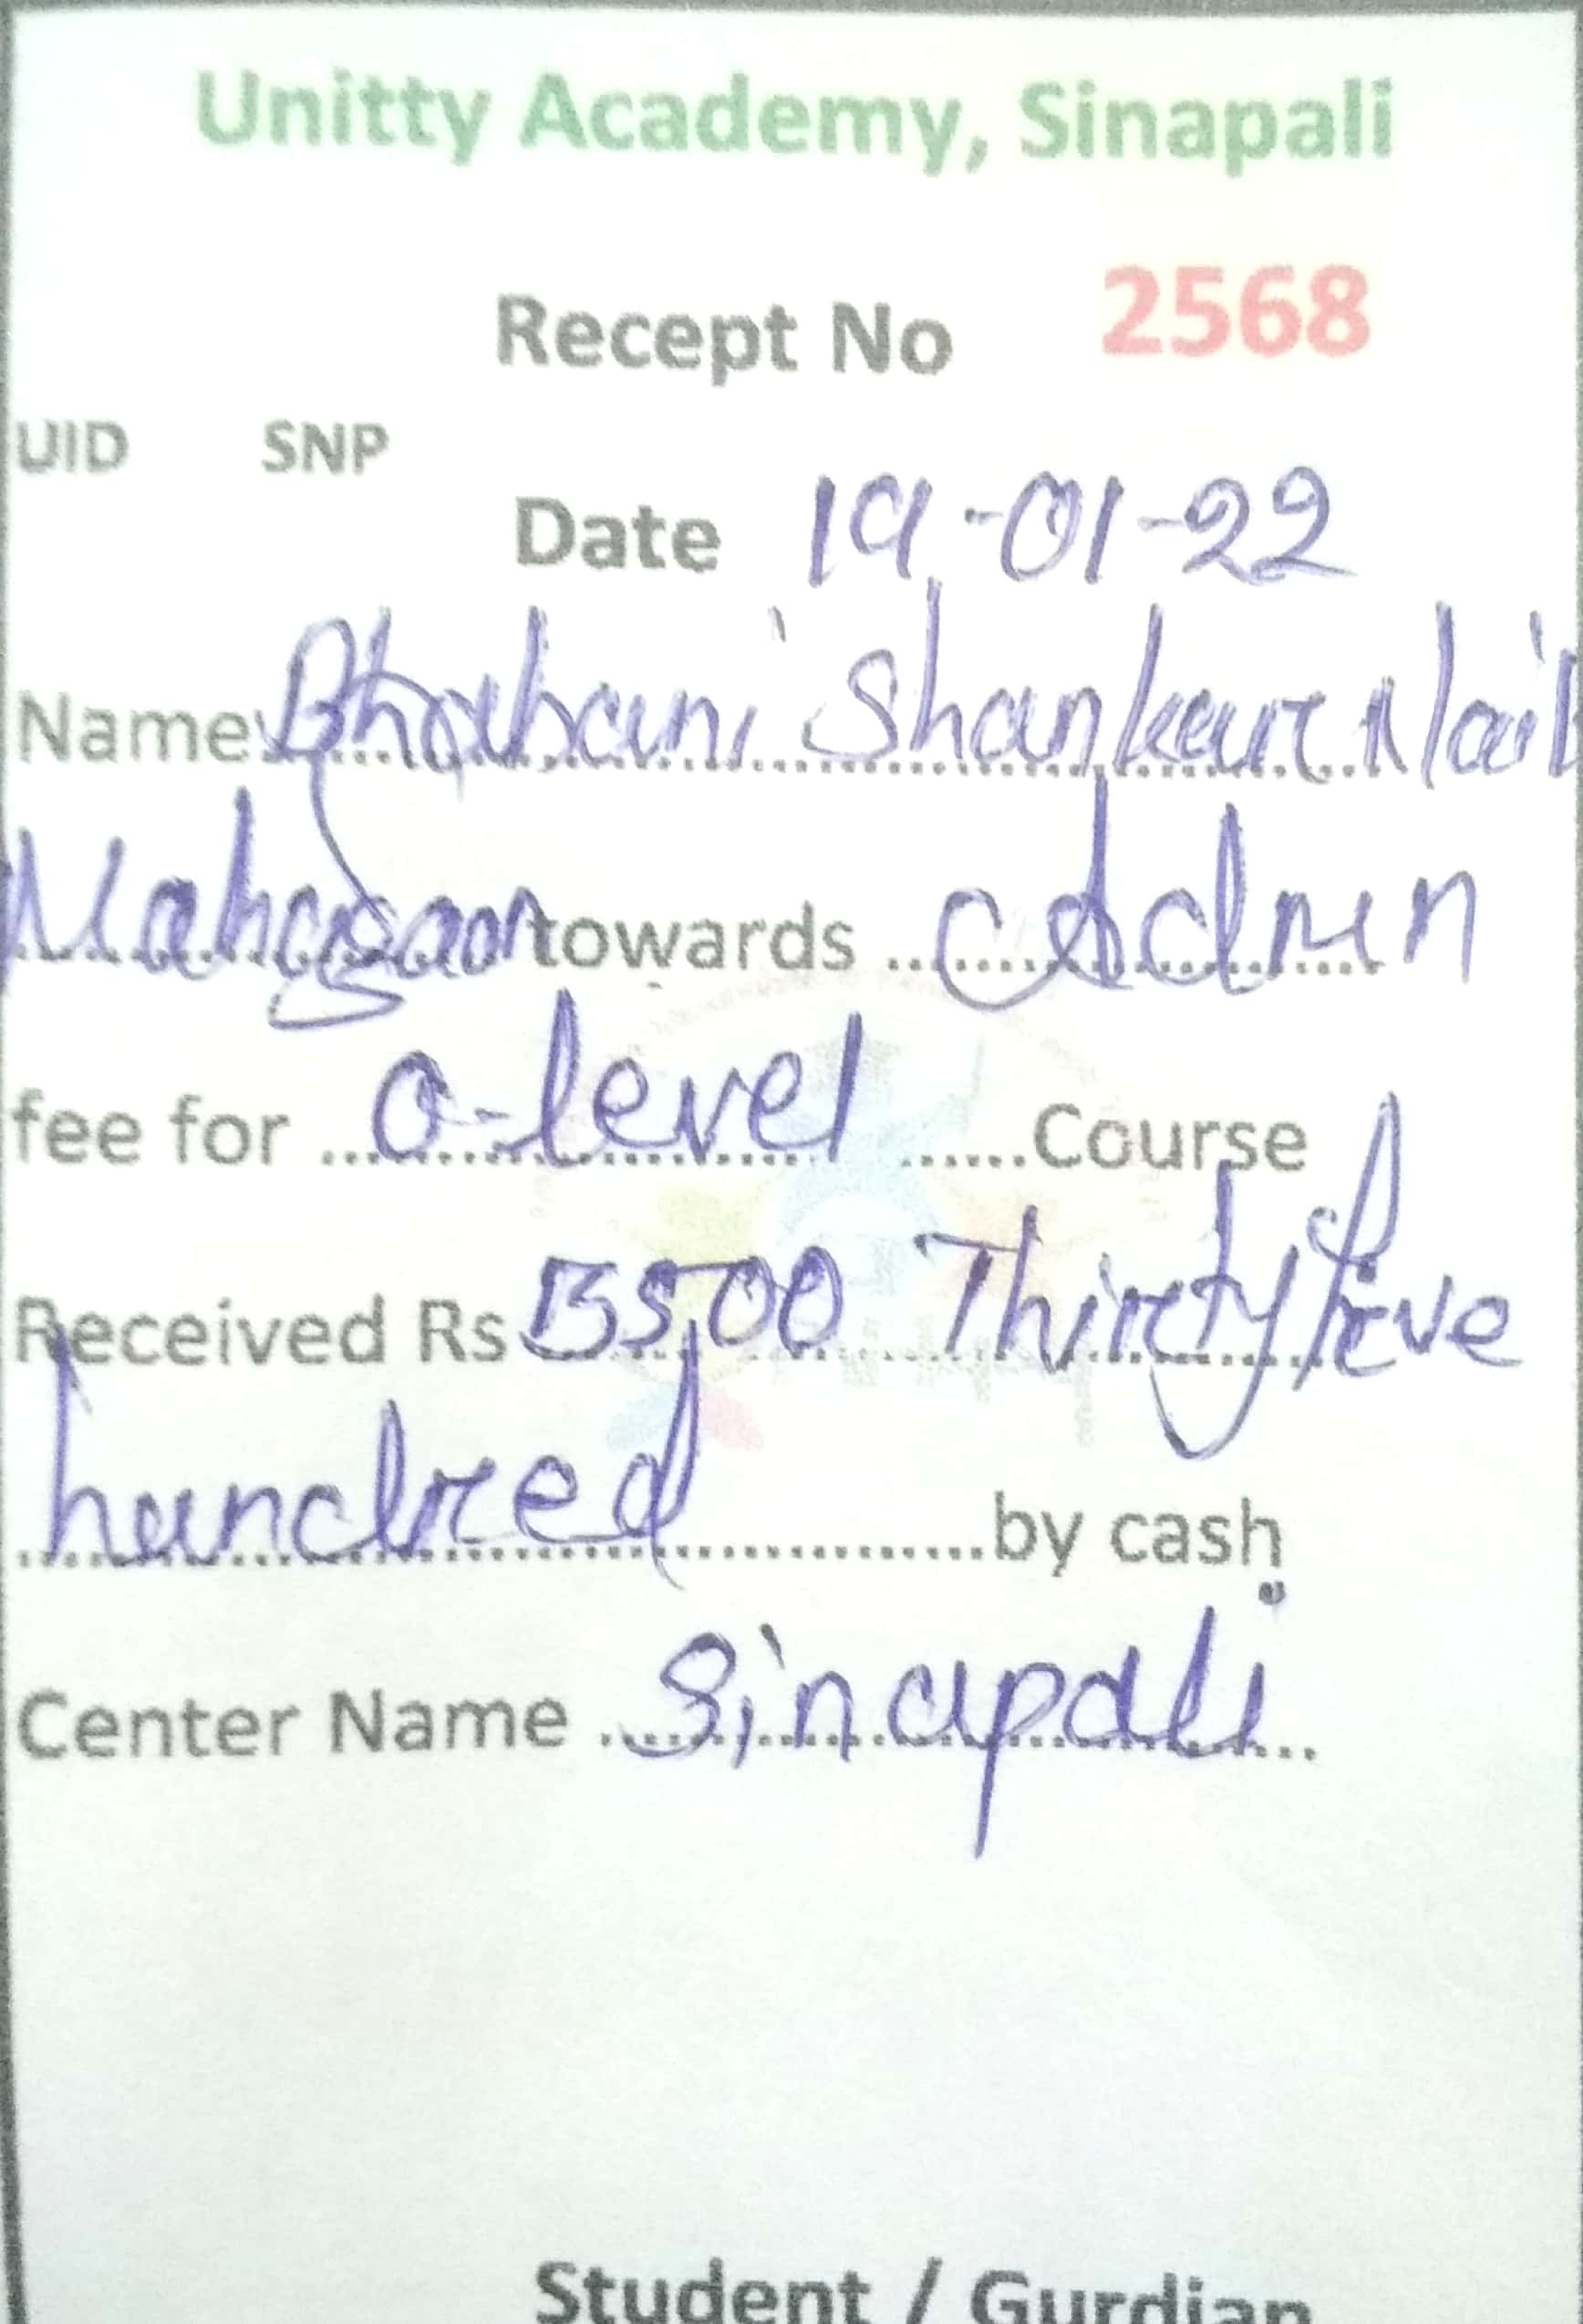 Unitty Academy, Sinapali
Recept No 2568
UID SNP
Date 19-01-22
Name Bhabani Shankar Naik
towards Admn
fee for O-level Course
Received Rs 3500 Thirty five
hundred by cash
Center Name Sinapali
Student / Gurdian